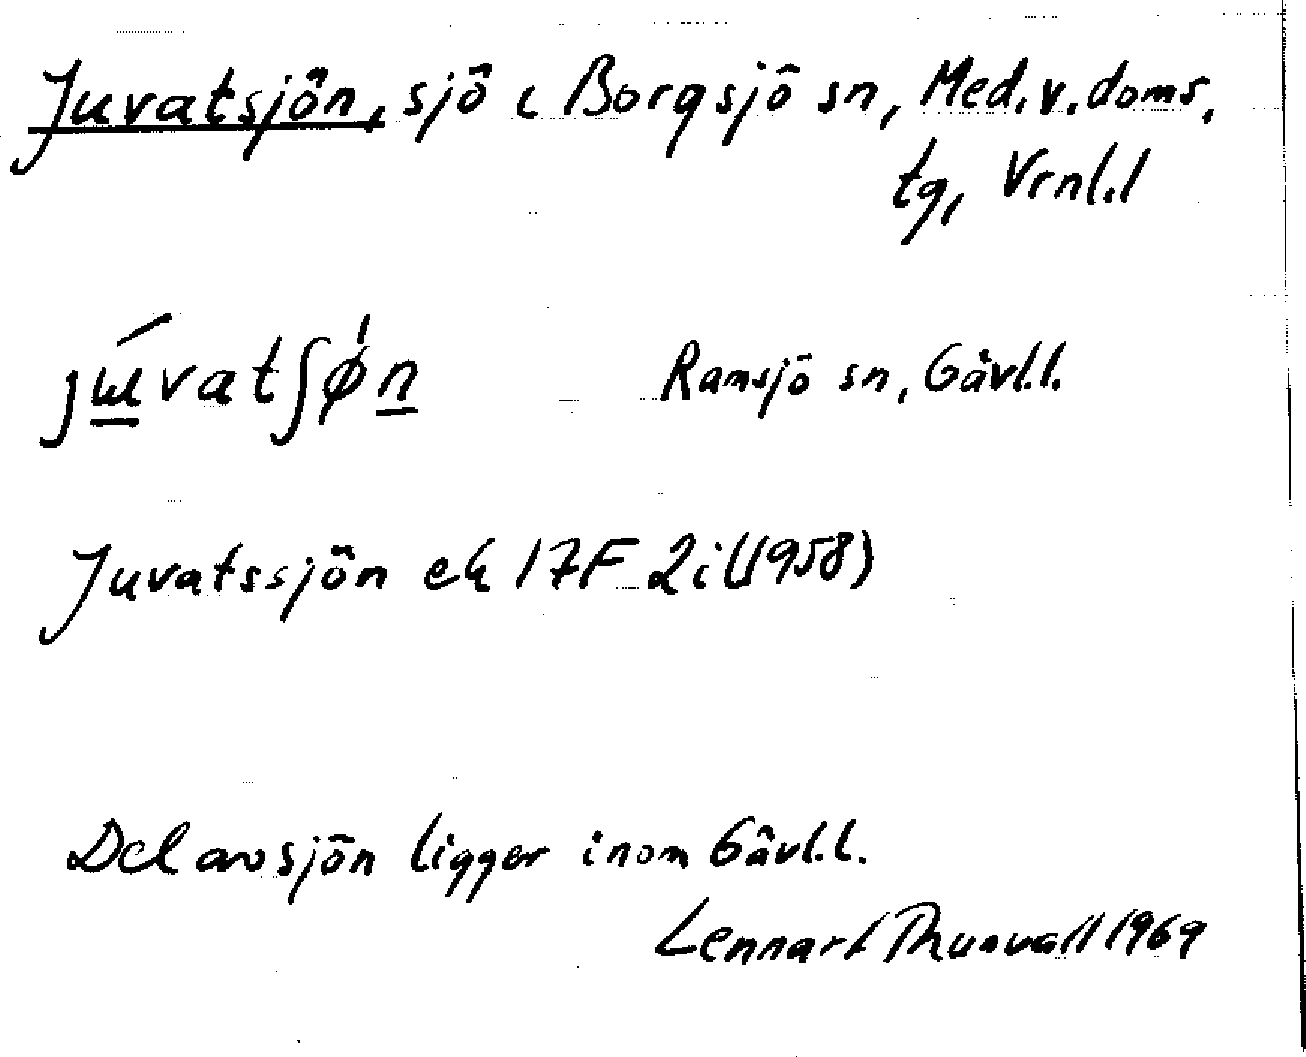 Juvatsjön, sjö i Borgsjö sn, Med. v. doms.
tg, Vrnl.l
jɯ́vatʃø̍n Ramsjö sn, Gävl.l.
Juvatssjön ek 17F 2i (1958)
Del av sjön ligger inom Gävl.l.
Lennart Thunvall 1969